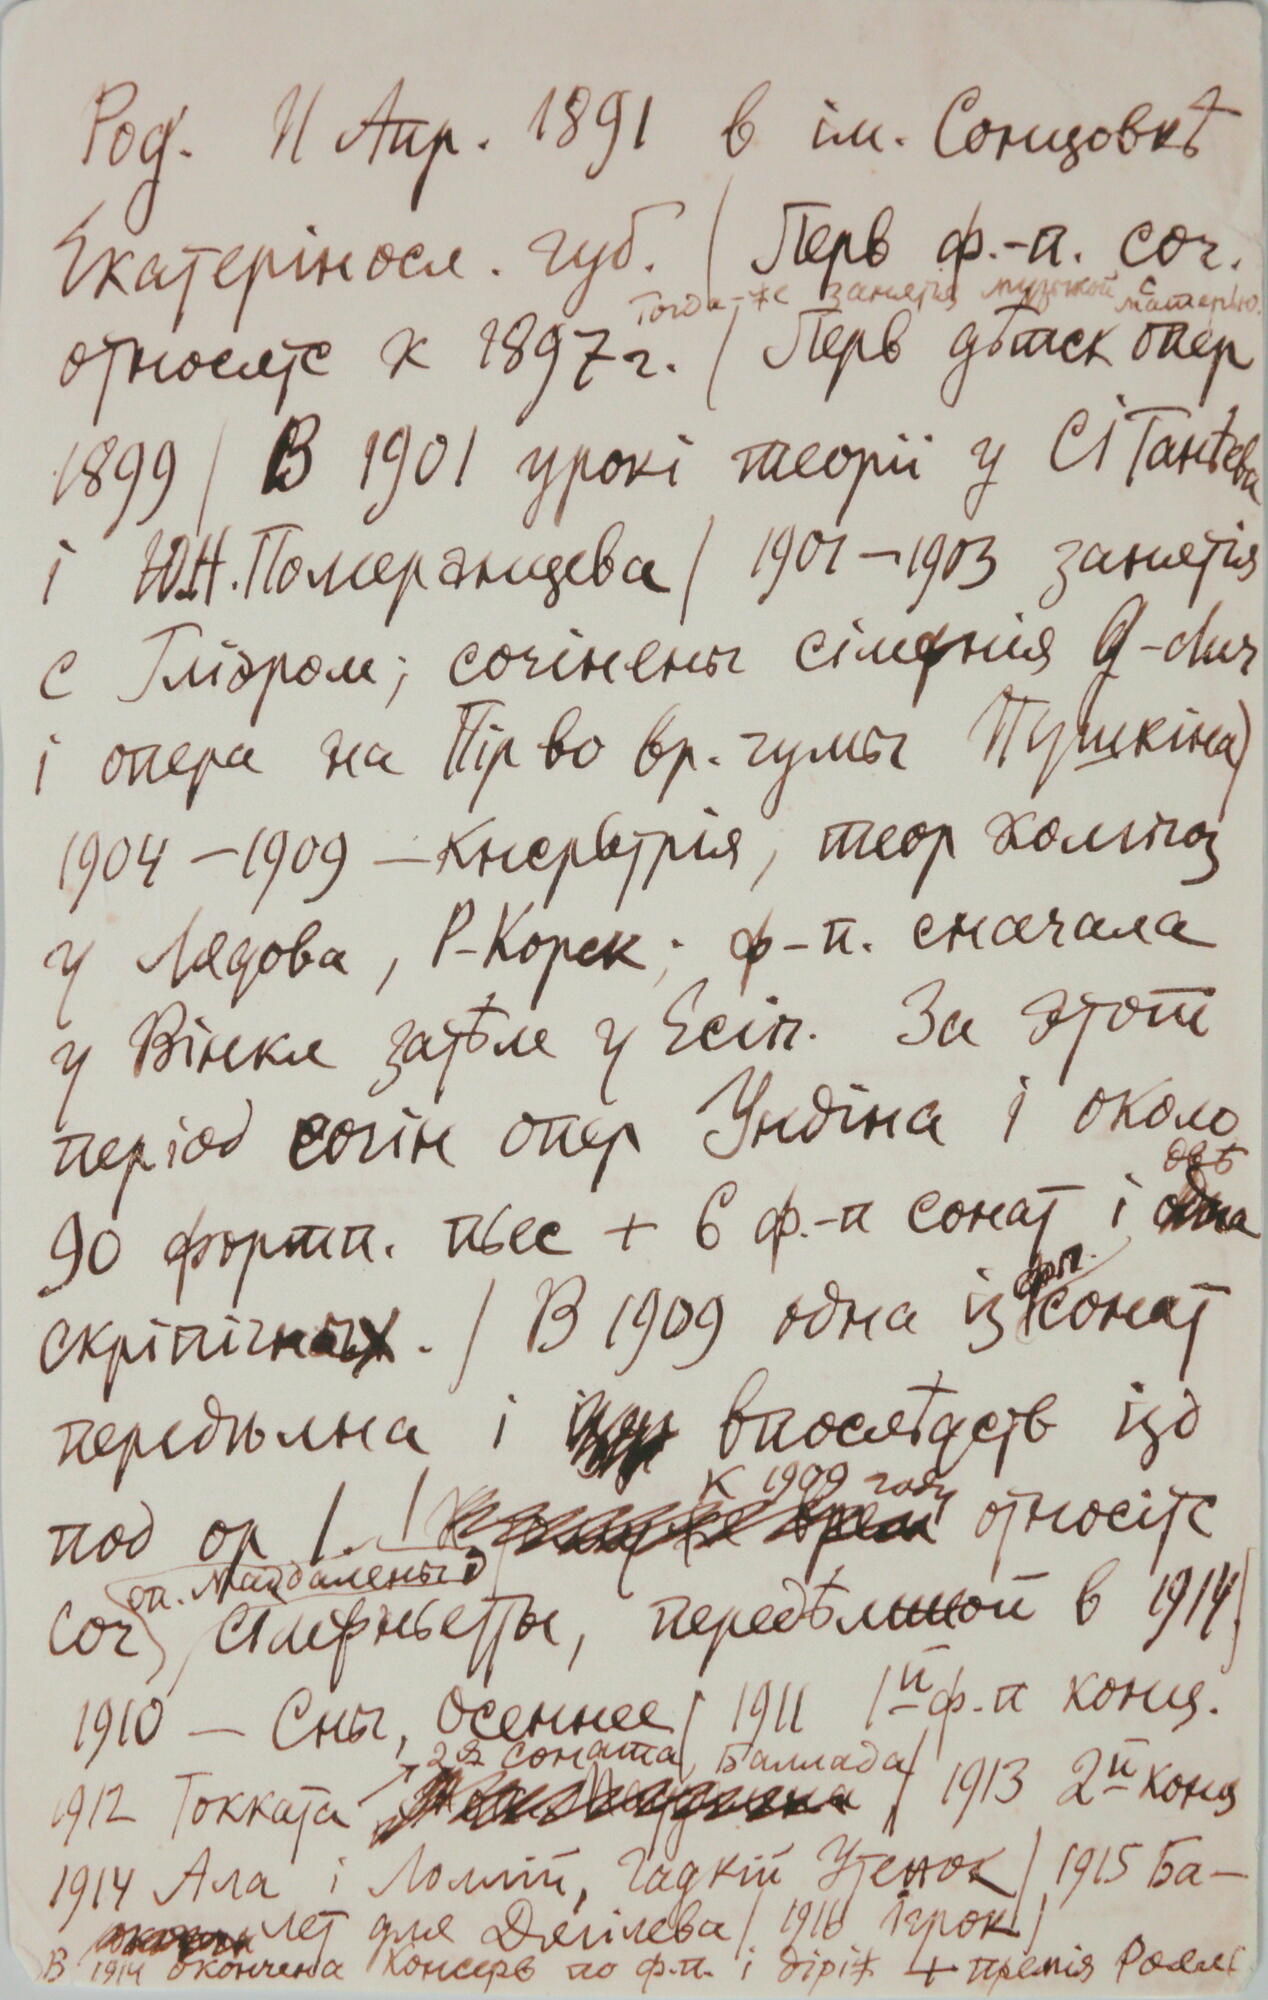 Род. 11 Апр. 1891 в ім. Сонцовкѣ
Екатерінося. губ. / Перв ф.-п. соч.
Тогда-же занятія музыкой с матерью.
относятс к 1897 г. / Перв дѣтск опер
1899 / В 1901 урокі теоріі у СІ Танѣева
і Ю.Н. Померанцева / 1901–1903 занятія
с Гліэром; сочінены сімфнія G-dur
і опера на Пір во вр. чумы Пушкіна)
1904 – 1909 – Кнсрвтрія, теор композ
у Лядова, Р-Корск; ф-п. сначала
у Вінкл затѣм у Есіп. За этот
період сочін опер Ундіна і около
90 фортп. пьес + 6 ф.-п сонат і двѣ
скріпічных. / В 1909 одна із фп. сонат
передѣлна і впослѣдств ізд
под op 1. / К 1909 году относітс
соч оп. Маддалены и
Сімфньетты, передѣлнной в 1914 /
1910 – Сны, Осеннее / 1911 1й ф-п конц.
1912 Токката 2я соната, Баллада / 1913 2й конц
1914 Ала і Лоллій, Гадкій Утенок / 1915 Ба-
лет для Дягілева / 1916 Ігрок /
В 1914 окончена Консерв по ф.п. і діріж + премія Роял